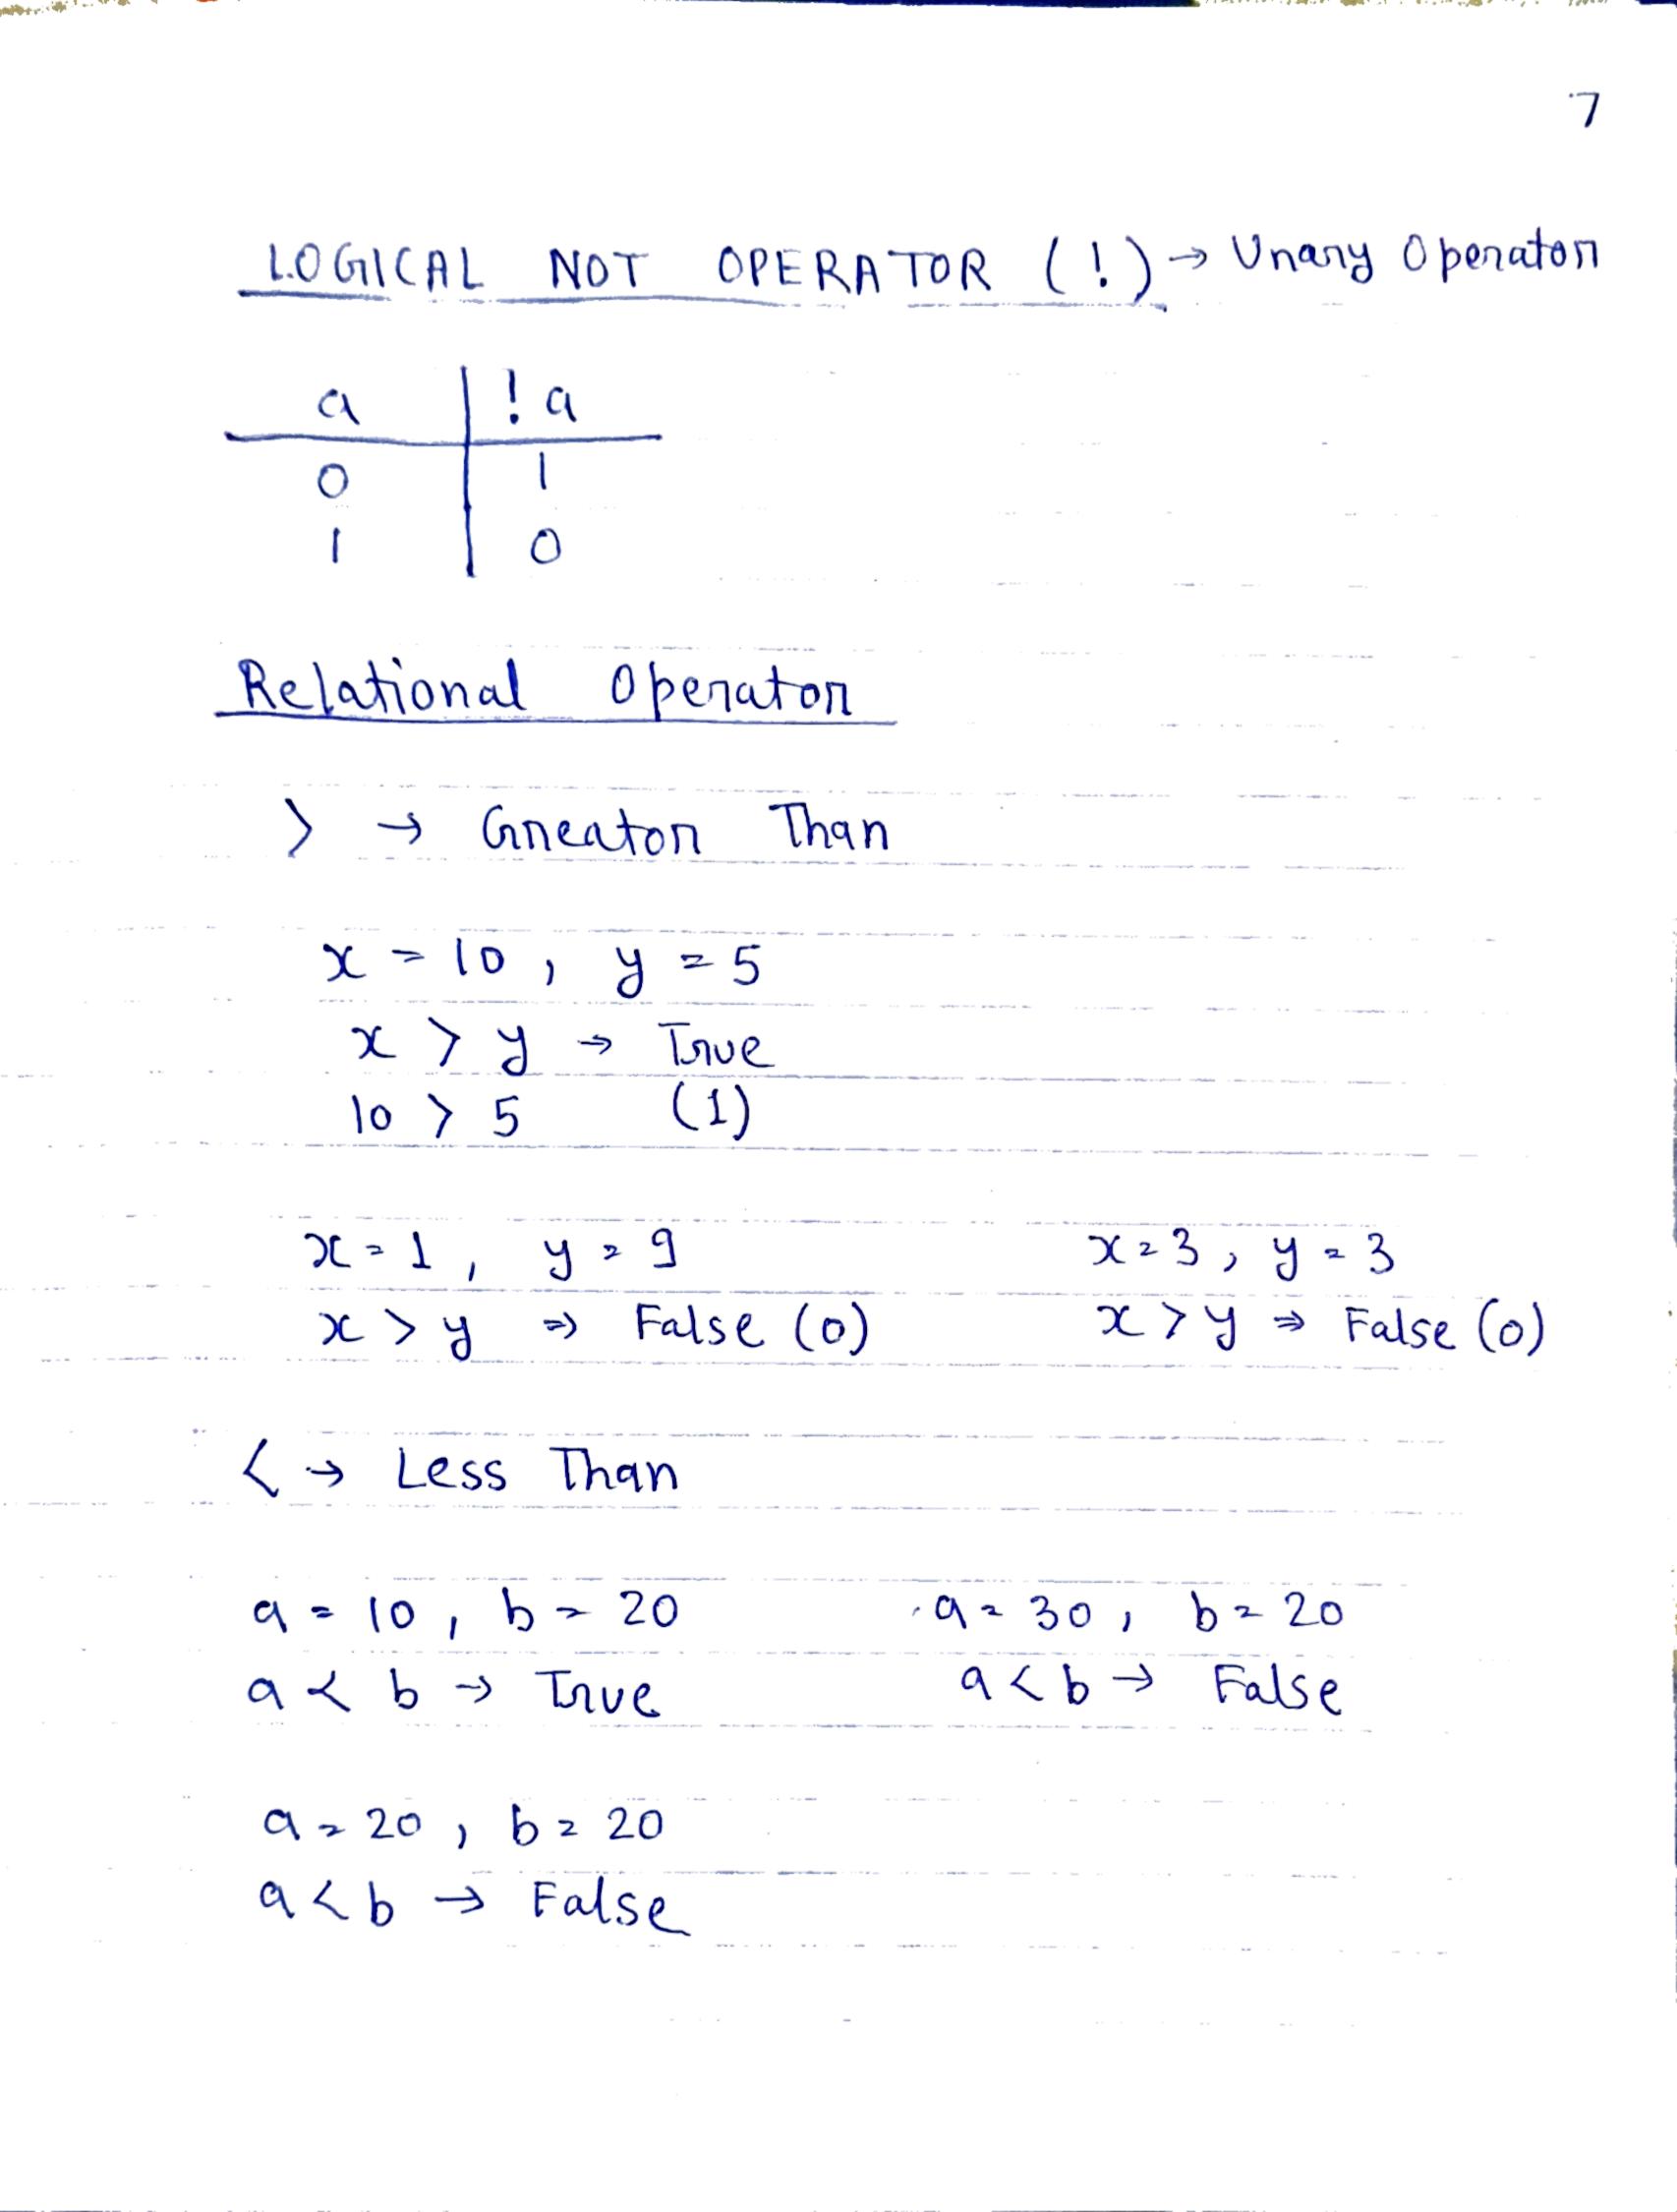 7
LOGICAL NOT OPERATOR (!) → Unary Operator
a | !a
0 | 1
1 | 0
Relational Operator
> → Greator Than
x = 10, y = 5
x > y → True
10 > 5 (1)
x = 1, y = 9 x = 3, y = 3
x > y ⇒ False (0) x > y ⇒ False (0)
< → Less Than
a = 10, b = 20 a = 30, b = 20
a < b → True a < b → False
a = 20, b = 20
a < b → False